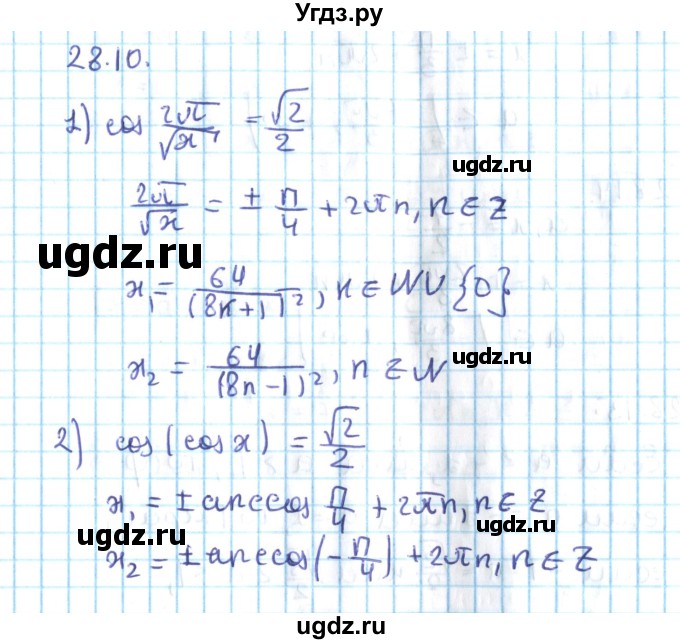 Угдз.ру
28.10.
1) cos 2π/√x = √2/2
ugdz.ru
2π/√x = ± π/4 + 2πn, n ∈ Z
ugdz.ru
ugdz.ru
x₁ = 64/(8n+1)², n ∈ N∪{0}
x₂ = 64/(8n-1)², n ∈ N
ugdz.ru
2) cos(cos x) = √2/2
ugdz.ru
x₁ = ± arccos π/4 + 2πn, n ∈ Z
ugdz.ru
ugdz.ru
x₂ = ± arccos(-π/4) + 2πn, n ∈ Z
ugdz.ru